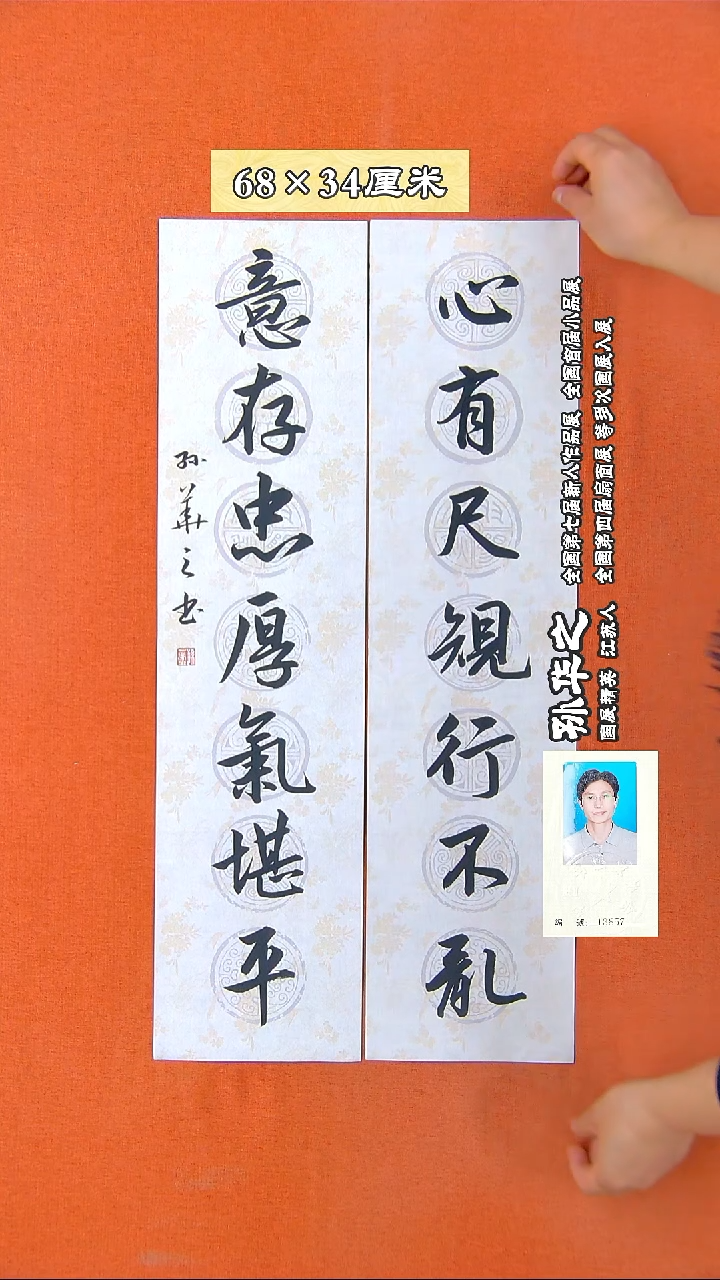 68×34厘米
心有尺規行不亂
意存忠厚氣堪平
孙華之书
孙华之
国展精英 江苏人
全国第七届新人作品展 全国首届小品展
全国第四届扇面展 等多次国展入展
编 号: 13857